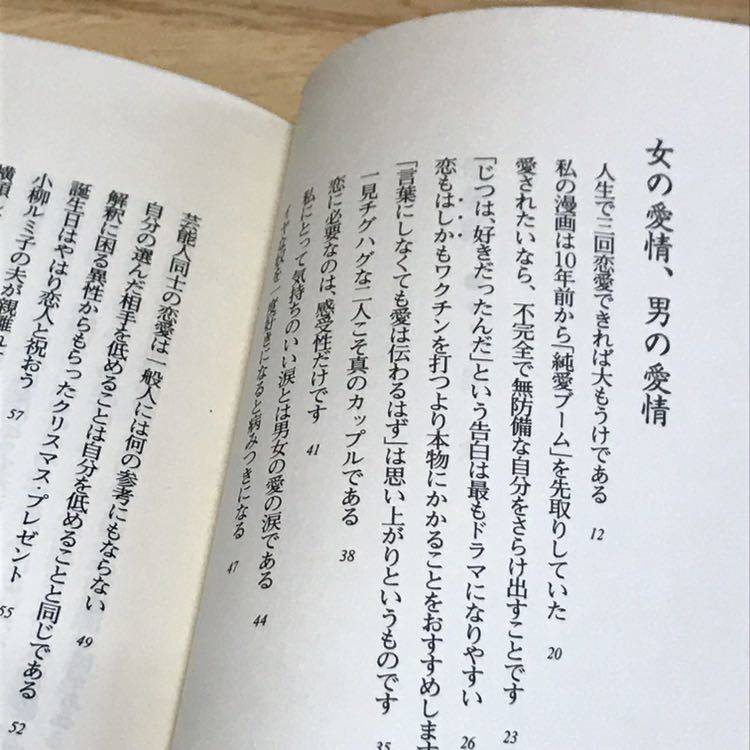 女の愛情、男の愛情
人生で三回恋愛できれば大もうけである 12
私の漫画は10年前から「純愛ブーム」を先取りしていた 20
愛されたいなら、不完全で無防備な自分をさらけ出すことです 23
「じつは、好きだったんだ」という告白は最もドラマになりやすい 26
恋もはしかもワクチンを打つより本物にかかることをおすすめします
「言葉にしなくても愛は伝わるはず」は思い上がりというものです 35
一見チグハグな二人こそ真のカップルである 38
恋に必要なのは、感受性だけです 41
私にとって気持ちのいい涙とは男女の愛の涙である 44
イヤな奴を一度好きになると病みつきになる 47
芸能人同士の恋愛は一般人には何の参考にもならない 49
自分の選んだ相手を低めることは自分を低めることと同じである 52
解釈に困る異性からもらったクリスマス・プレゼント 55
誕生日はやはり恋人と祝おう 57
小柳ルミ子の夫が親離れ